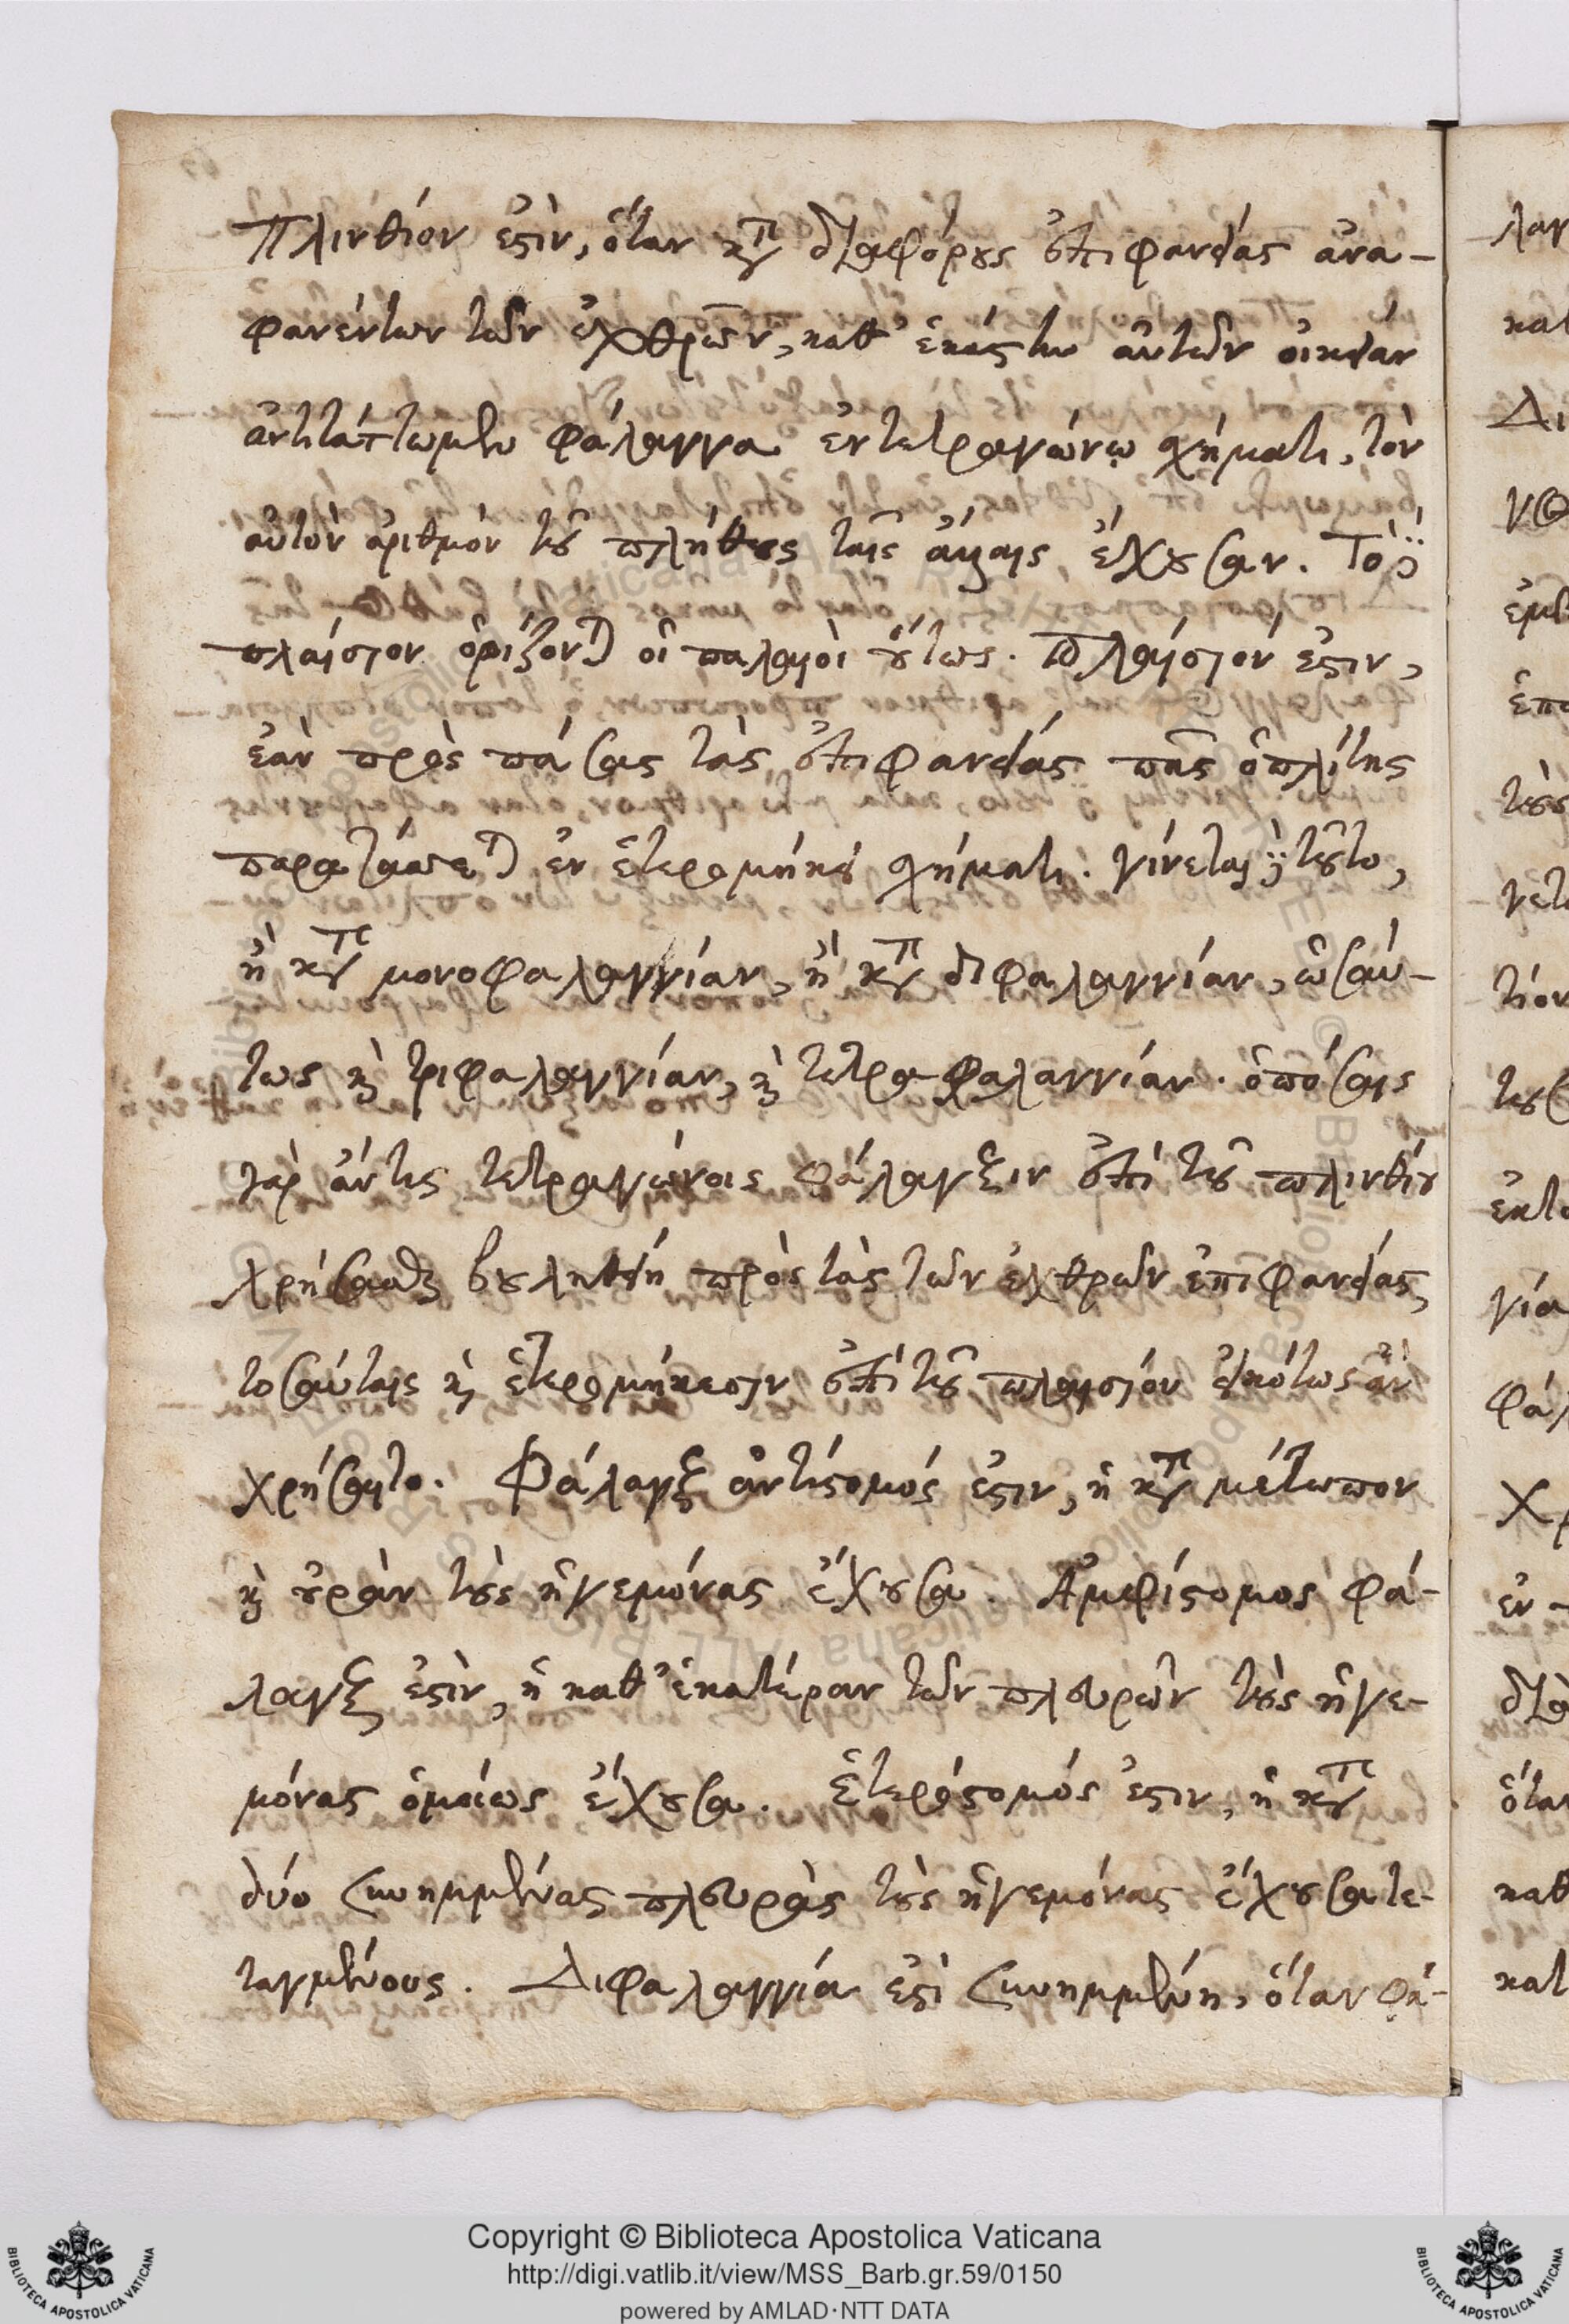 Πλινθίον ἐστὶν, ὅταν κατὰ διαφόρους ἐπιφανείας ἀνα-
φανέντων τῶν ἐχθρῶν, καθ' ἑκάστην αὐτῶν οἰκείαν
ἀντιτάττωμεν φάλαγγα ἐν τετραγώνῳ σχήματι, τὸν
αὐτὸν ἀριθμὸν τοῦ πλήθους ταῖς ἄλλαις ἔχουσαν. Τὸ δὲ
πλαίσιον ὁρίζονται οἱ παλαιοὶ οὕτως. Πλαίσιόν ἐστιν,
ἐὰν πρὸς πάσας τὰς ἐπιφανείας πᾶς ὁπλίτης
παρατάσσεται ἐν ἑτερομήκει σχήματι. γίνεται δὲ τοῦτο,
ἢ κατὰ μονοφαλαγγίαν, ἢ κατὰ διφαλαγγίαν, ὡσαύ-
τως καὶ τριφαλαγγίαν, καὶ τετραφαλαγγίαν. ὁπόσαις
γὰρ ἄν τις τετραγώνοις φάλαγξιν ἐπὶ τοῦ πλινθίου
χρήσασθαι βουληθείη πρὸς τὰς τῶν ἐχθρῶν ἐπιφανείας,
τοσαύταις καὶ ἑτερομήκεσιν ἐπὶ τοῦ πλαισίου εἰκότως ἂν
χρήσαιτο. Φάλαγξ ἀντίστομός ἐστιν, ἡ κατὰ μέτωπον
καὶ οὐρὰν τοὺς ἡγεμόνας ἔχουσα. Ἀμφίστομος φά-
λαγξ ἐστὶν, ἡ καθ' ἑκατέραν τῶν πλευρῶν τοὺς ἡγε-
μόνας ὁμοίως ἔχουσα. Ἑτερόστομός ἐστιν, ἡ κατὰ
δύο συνημμένας πλευρὰς τοὺς ἡγεμόνας ἔχουσα τε-
ταγμένους. Διφαλαγγία ἐστὶ συνημμένη, ὅταν φά-
Copyright © Biblioteca Apostolica Vaticana
http://digi.vatlib.it/view/MSS_Barb.gr.59/0150
powered by AMLAD·NTT DATA